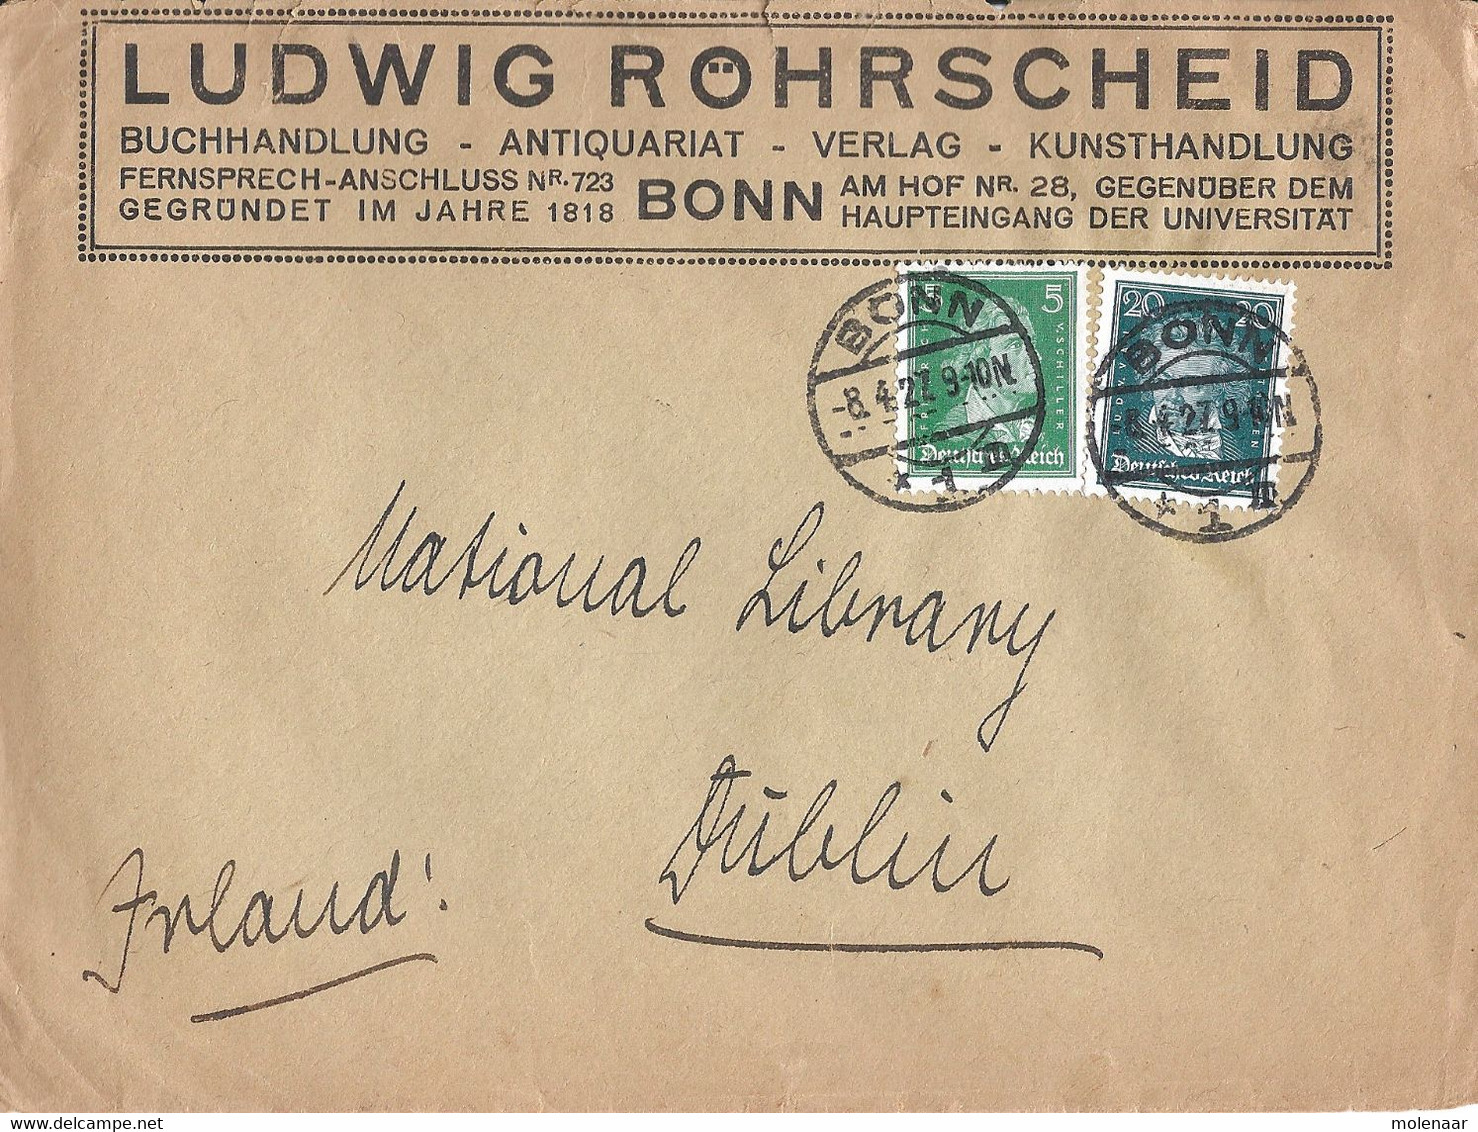 LUDWIG RÖHRSCHEID
BUCHHANDLUNG - ANTIQUARIAT - VERLAG - KUNSTHANDLUNG
FERNSPRECH-ANSCHLUSS NR. 723
GEGRÜNDET IM JAHRE 1818
BONN
AM HOF NR. 28, GEGENÜBER DEM
HAUPTEINGANG DER UNIVERSITÄT
5 5
V. SCHILLER
Deutsches Reich
20 20
Deutsches Reich
BONN
-8.4.27. 9-10N.
* 1
BONN
-8.4.27. 9-10N
* 1
National Library
Dublin
Irland!
molenaar